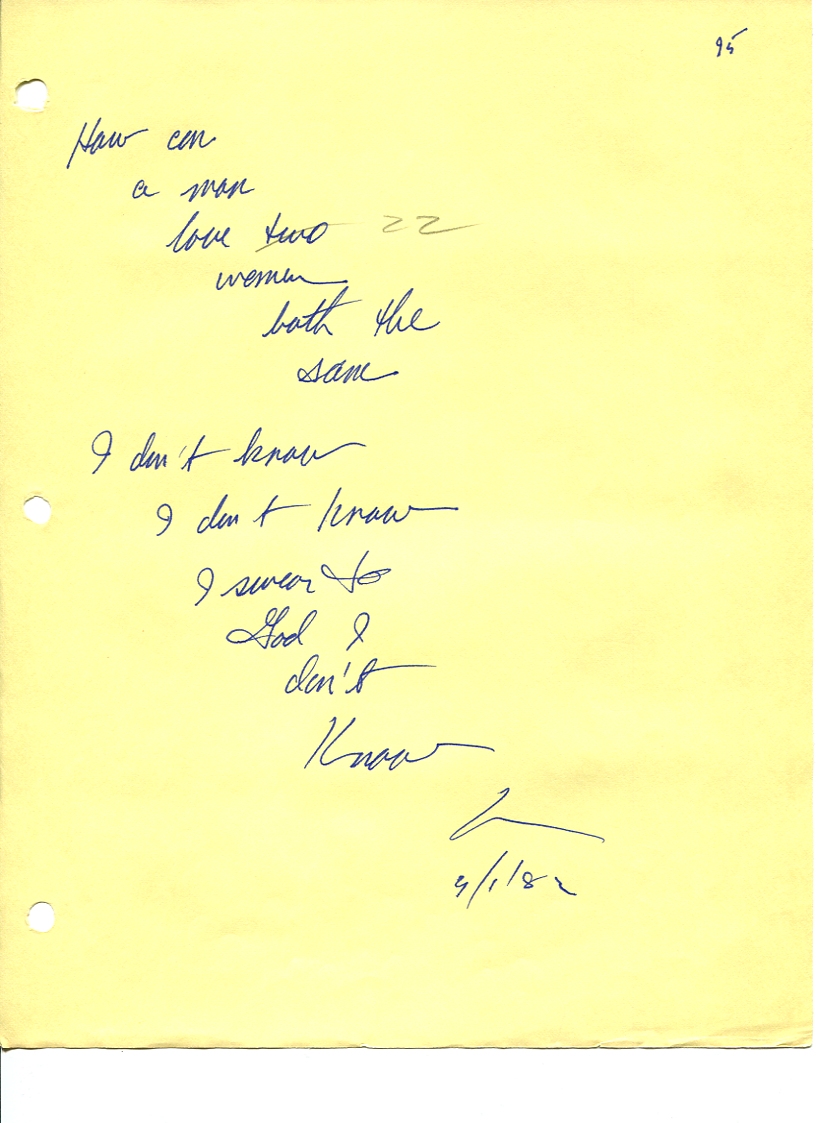 95
How can
a man
love two 22
women
both the
same
I don't know
I don't know
I swear to
God I
don't
Know
9/1/82